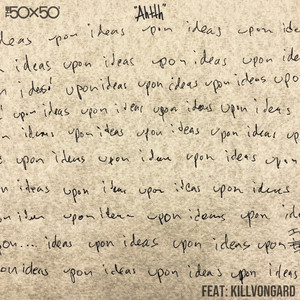 THE 50X50 "Ahhh"
ideas upon ideas upon ideas upon
ideas upon ideas upon ideas
ideas upon ideas upon ideas upon ideas
upon ideas upon ideas upon ideas upon ideas
ideas upon ideas upon ideas upon ideas up
upon ideas upon ideas upon ideas upon
ideas upon ideas upon ideas upon ideas
upon ideas upon ideas upon ideas upon ideas
upon.... ideas upon ideas upon ideas upon
upon ideas upon ideas upon ideas upon ideas
FEAT: KILLVONGARD